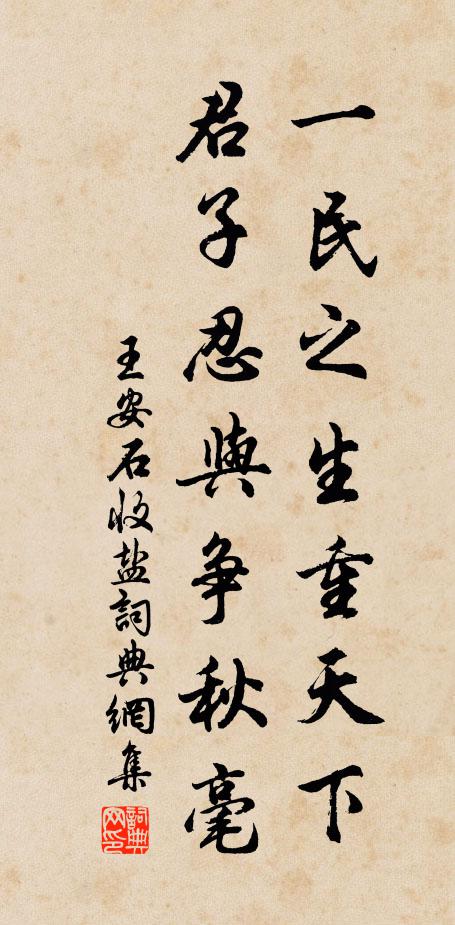 一民之生重天下
君子忍與争秋毫
王安石收盐詞典網集
詞典网印